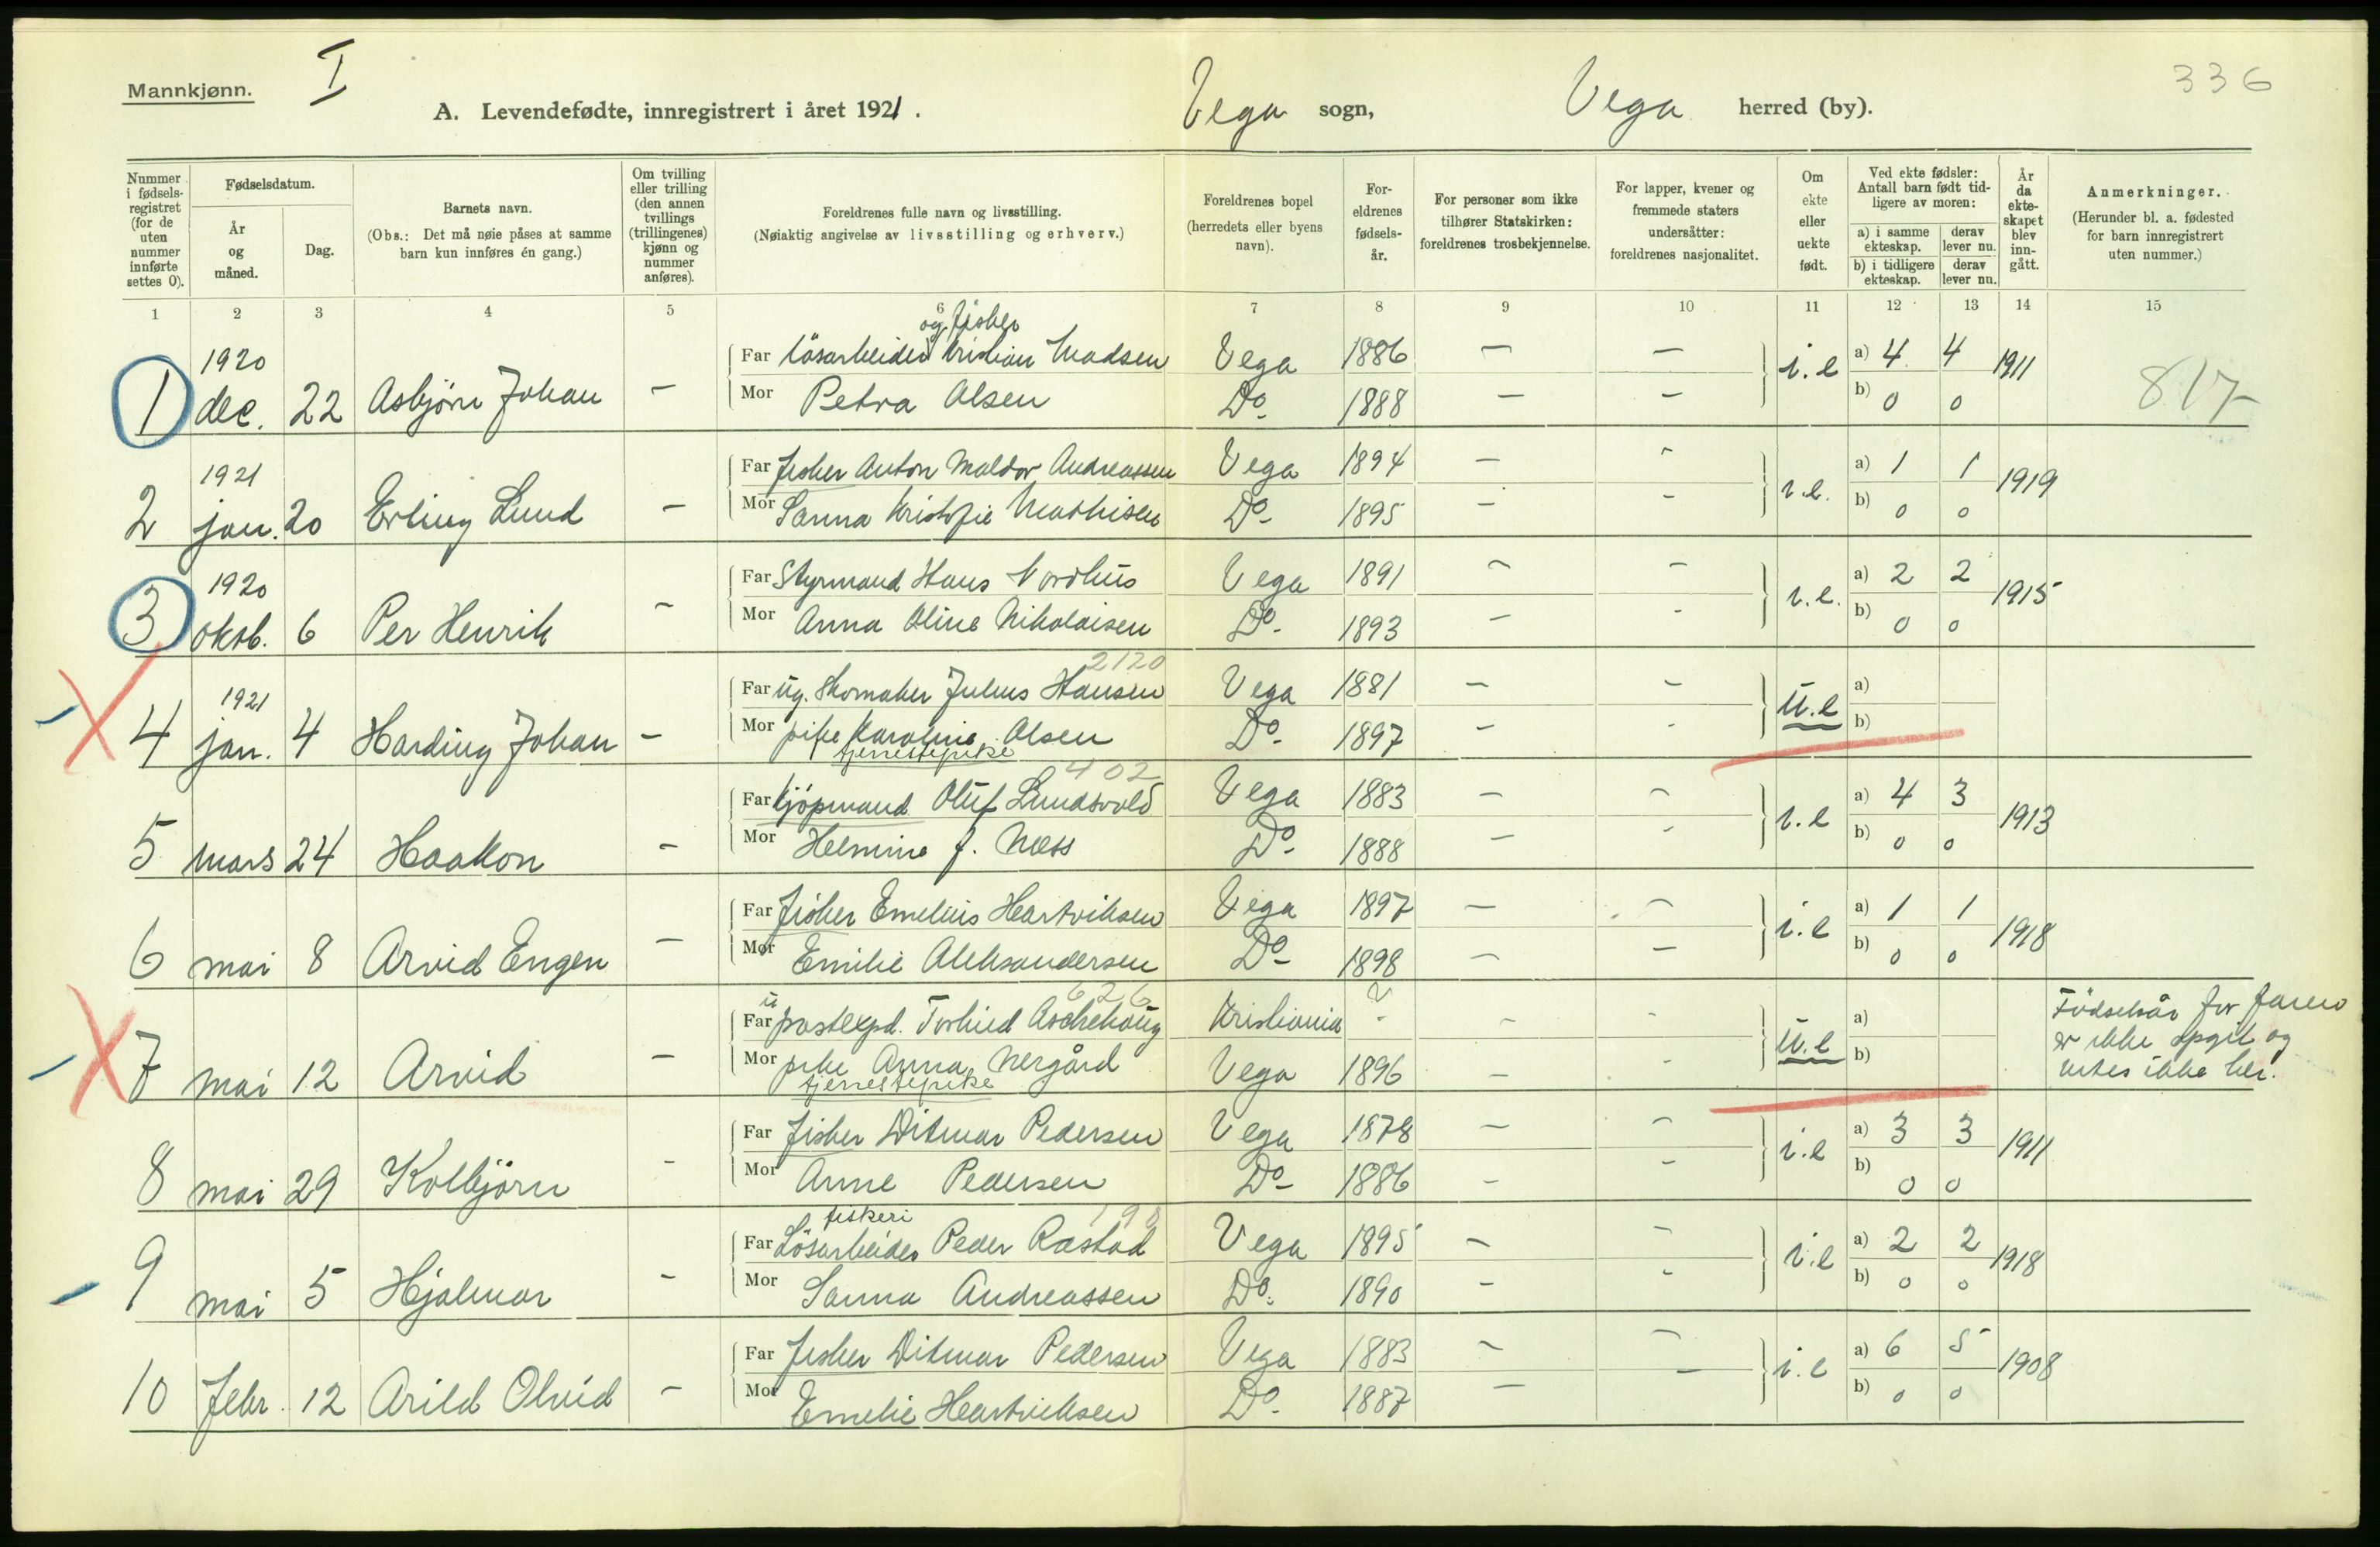 Mannkjønn.
I
336
A. Levendefødte, innregistrert i året 1921.
Vega sogn,
Vega herred (by).
Nummer i fødsels-registret (for de uten nummer innførte settes 0).
Fødselsdatum.
År og måned.
Dag.
Barnets navn.
(Obs.: Det må nøie påses at samme barn kun innføres én gang.)
Om tvilling eller trilling (den annen tvillings (trillingenes) kjønn og nummer anføres).
Foreldrenes fulle navn og livsstilling.
(Nøiaktig angivelse av livsstilling og erhverv.)
Foreldrenes bopel
(herredets eller byens navn).
For-eldrenes fødsels-år.
For personer som ikke tilhører Statskirken: foreldrenes trosbekjennelse.
For lapper, kvener og fremmede staters undersåtter: foreldrenes nasjonalitet.
Om ekte eller uekte født.
Ved ekte fødsler: Antall barn født tid-ligere av moren:
a) i samme ekteskap. derav lever nu.
b) i tidligere ekteskap. derav lever nu.
År da ekte-skapet blev inn-gått.
Anmerkninger.
(Herunder bl. a. fødested for barn innregistrert uten nummer.)
1 2 3 4 5 6 7 8 9 10 11 12 13 14 15
og fisker
1920 Far løsarbeider Kristian Madsen Vega 1886 — — i.e a) 4 4 1911
1 dec. 22 Asbjørn Johan — Mor Petra Olsen Do- 1888 — — b) 0 0 817-
1921 Far fisker Anton Maldor Andreassen Vega 1894 — — i.e. a) 1 1 1919
2 jan. 20 Erling Lund — Mor Sanna Kristofie Mathisen Do- 1895 — — b) 0 0
1920 Far Styrmand Hans Nordhus Vega 1891 — — i.e. a) 2 2 1915
3 oktb. 6 Per Henrik — Mor Anna Oline Nikolaisen Do- 1893 — — b) 0 0
2120
1921 Far ug. Skomaker Julius Hansen Vega 1881 — — u.e a)
4 jan. 4 Harding Johan — Mor pike Karoline Olsen Do- 1897 — — b)
tjenestepike
402
Far kjøpmand Oluf Lundsvold Vega 1883 — — i.e a) 4 3 1913
5 mars 24 Haakon — Mor Helmine f. Næss Do- 1888 — — b) 0 0
Far fisker Emelius Hartviksen Vega 1897 — — i.e a) 1 1 1918
6 mai 8 Arvid Engen — Mor Emilie Aleksandersen Do- 1898 — — b) 0 0
u 626 ?
Far postexpd. Torleid Aschehoug Kristiania - — — u.e a) Fødselsår for faren er ikke opgit og vites ikke her.
7 mai 12 Arvid — Mor pike Anna Nergård Vega 1896 — — b)
tjenestepike
Far fisker Ditmar Pedersen Vega 1878 — — i.e a) 3 3 1911
8 mai 29 Kolbjørn — Mor Anne Pedersen Do- 1886 — — b) 0 0
fiskeri
Far Løsarbeider Peder Rastad Vega 1895 — — i.e a) 2 2 1918
9 mai 5 Hjalmar — Mor Sanna Andreassen Do. 1890 — — b) 0 0
Far fisker Ditmar Pedersen Vega 1883 — — i.e a) 6 5 1908
10 febr. 12 Arild Olvid — Mor Emelie Hartviksen Do- 1887 — — b) 0 0